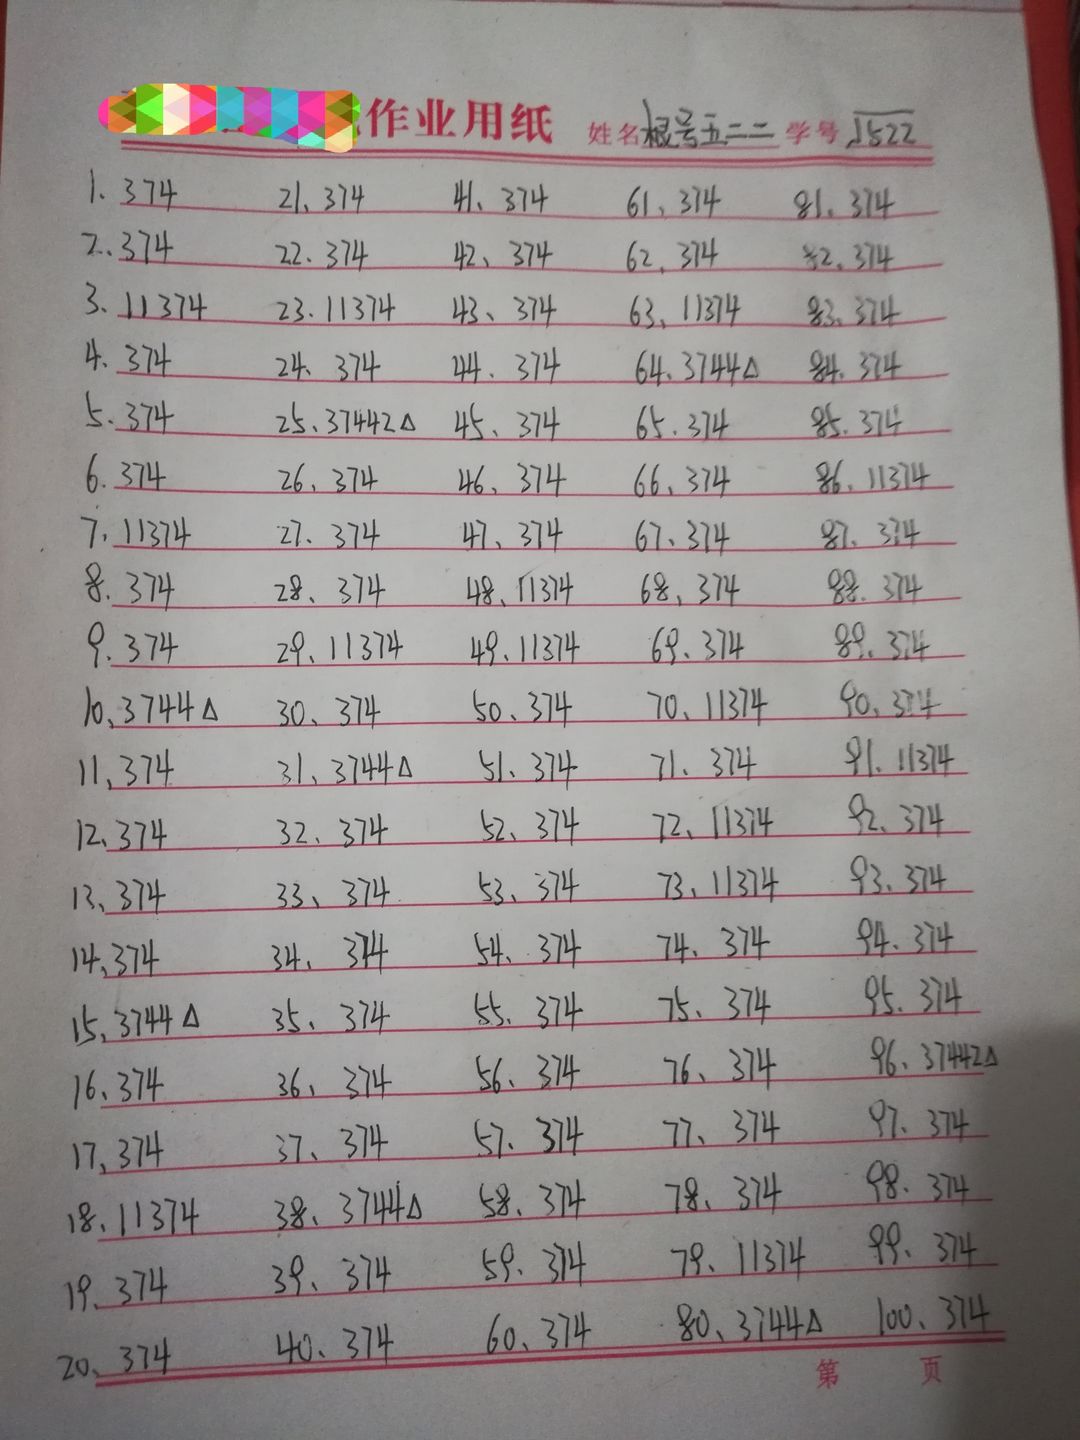 作业用纸 姓名 根号五二二 学号 √522
1. 374 21、374 41、374 61、374 81、374
2、374 22、374 42、374 62、374 82、374
3、11374 23、11374 43、374 63、11374 83、374
4、374 24、374 44、374 64、3744△ 84、374
5、374 25、37442△ 45、374 65、374 85、374
6、374 26、374 46、374 66、374 86、11374
7、11374 27、374 47、374 67、374 87、374
8、374 28、374 48、11374 68、374 88、374
9、374 29、11374 49、11374 69、374 89、374
10、3744△ 30、374 50、374 70、11374 90、374
11、374 31、3744△ 51、374 71、374 91、11374
12、374 32、374 52、374 72、11374 92、374
13、374 33、374 53、374 73、11374 93、374
14、374 34、374 54、374 74、374 94、374
15、3744△ 35、374 55、374 75、374 95、374
16、374 36、374 56、374 76、374 96、37442△
17、374 37、374 57、374 77、374 97、374
18、11374 38、3744△ 58、374 78、374 98、374
19、374 39、374 59、374 79、11374 99、374
20、374 40、374 60、374 80、3744△ 100、374
第 页